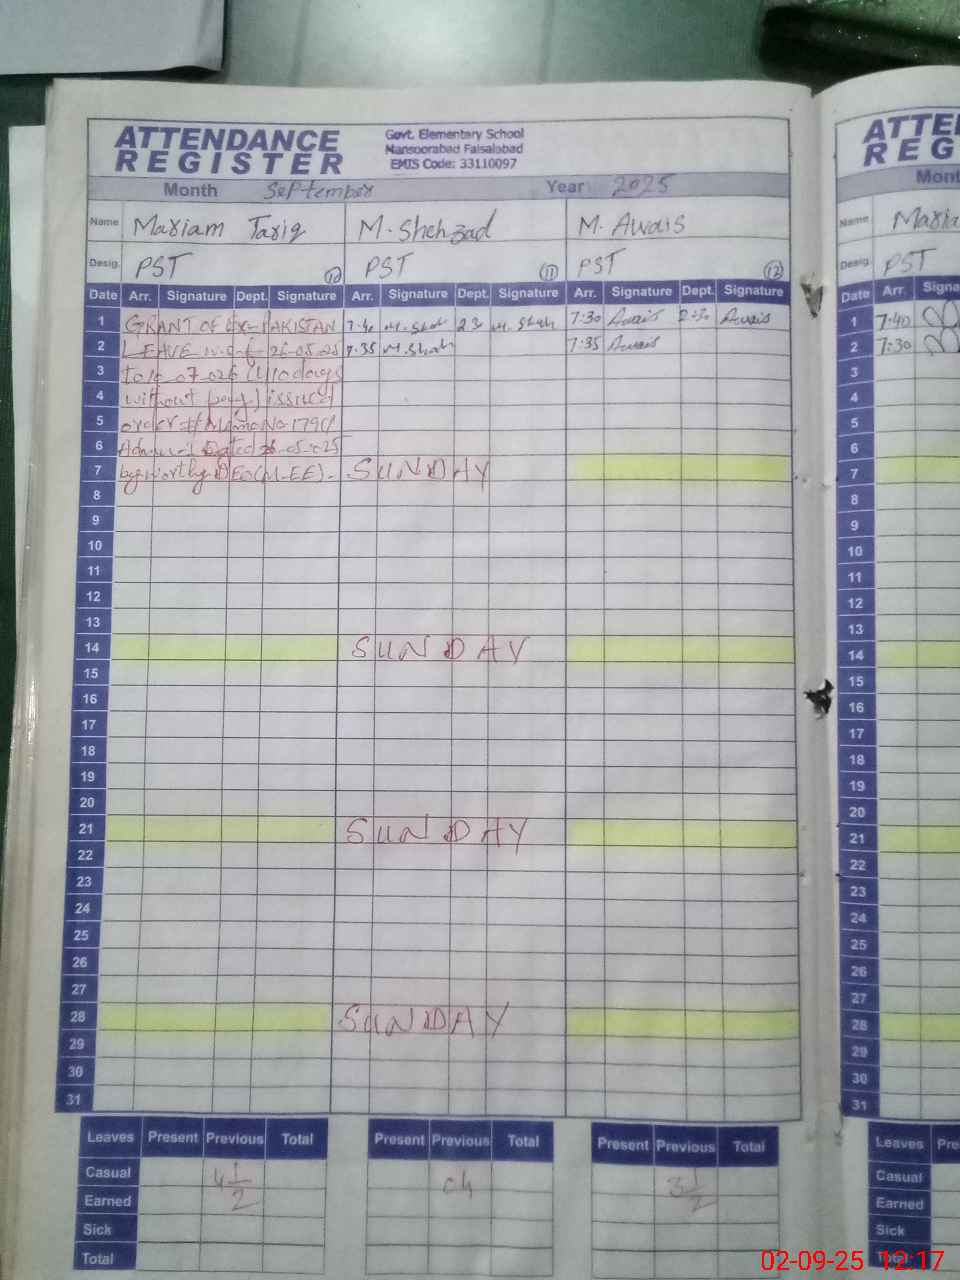 ATTENDANCE REGISTER
Govt. Elementary School
Mansoorabad Faisalabad
EMIS Code: 33110097
Month September Year 2025
Name Mariam Tariq M. Shehzad M. Awais
Desig. PST 10 PST 11 PST 12
Date Arr. Signature Dept. Signature Arr. Signature Dept. Signature Arr. Signature Dept. Signature
1 GRANT OF EX-PAKISTAN 7:40 M. Sheh 2:30 M. Sheh 7:30 Awais 2:30 Awais
2 LEAVE w.e.f 26-05-25 7:35 M. Sheh 7:35 Awais
3 to 10-07-026 (410 days
4 without pay) issued
5 order # Memo No 1790/
6 Dated 26-05-025
7 by worthy DEO(M-EE). SUNDAY
8
9
10
11
12
13
14 SUNDAY
15
16
17
18
19
20
21 SUNDAY
22
23
24
25
26
27
28 SUNDAY
29
30
31
Leaves Present Previous Total Present Previous Total Present Previous Total
Casual 4 1/2 04 3 1/2
Earned
Sick
Total
ATTE
REG
Mont
Name Maria
Desig. PST
Date Arr. Signa
1 7:40
2 7:30
3
4
5
6
7
8
9
10
11
12
13
14
15
16
17
18
19
20
21
22
23
24
25
26
27
28
29
30
31
Leaves Pre
Casual
Earned
Sick
Total
02-09-25 12:17